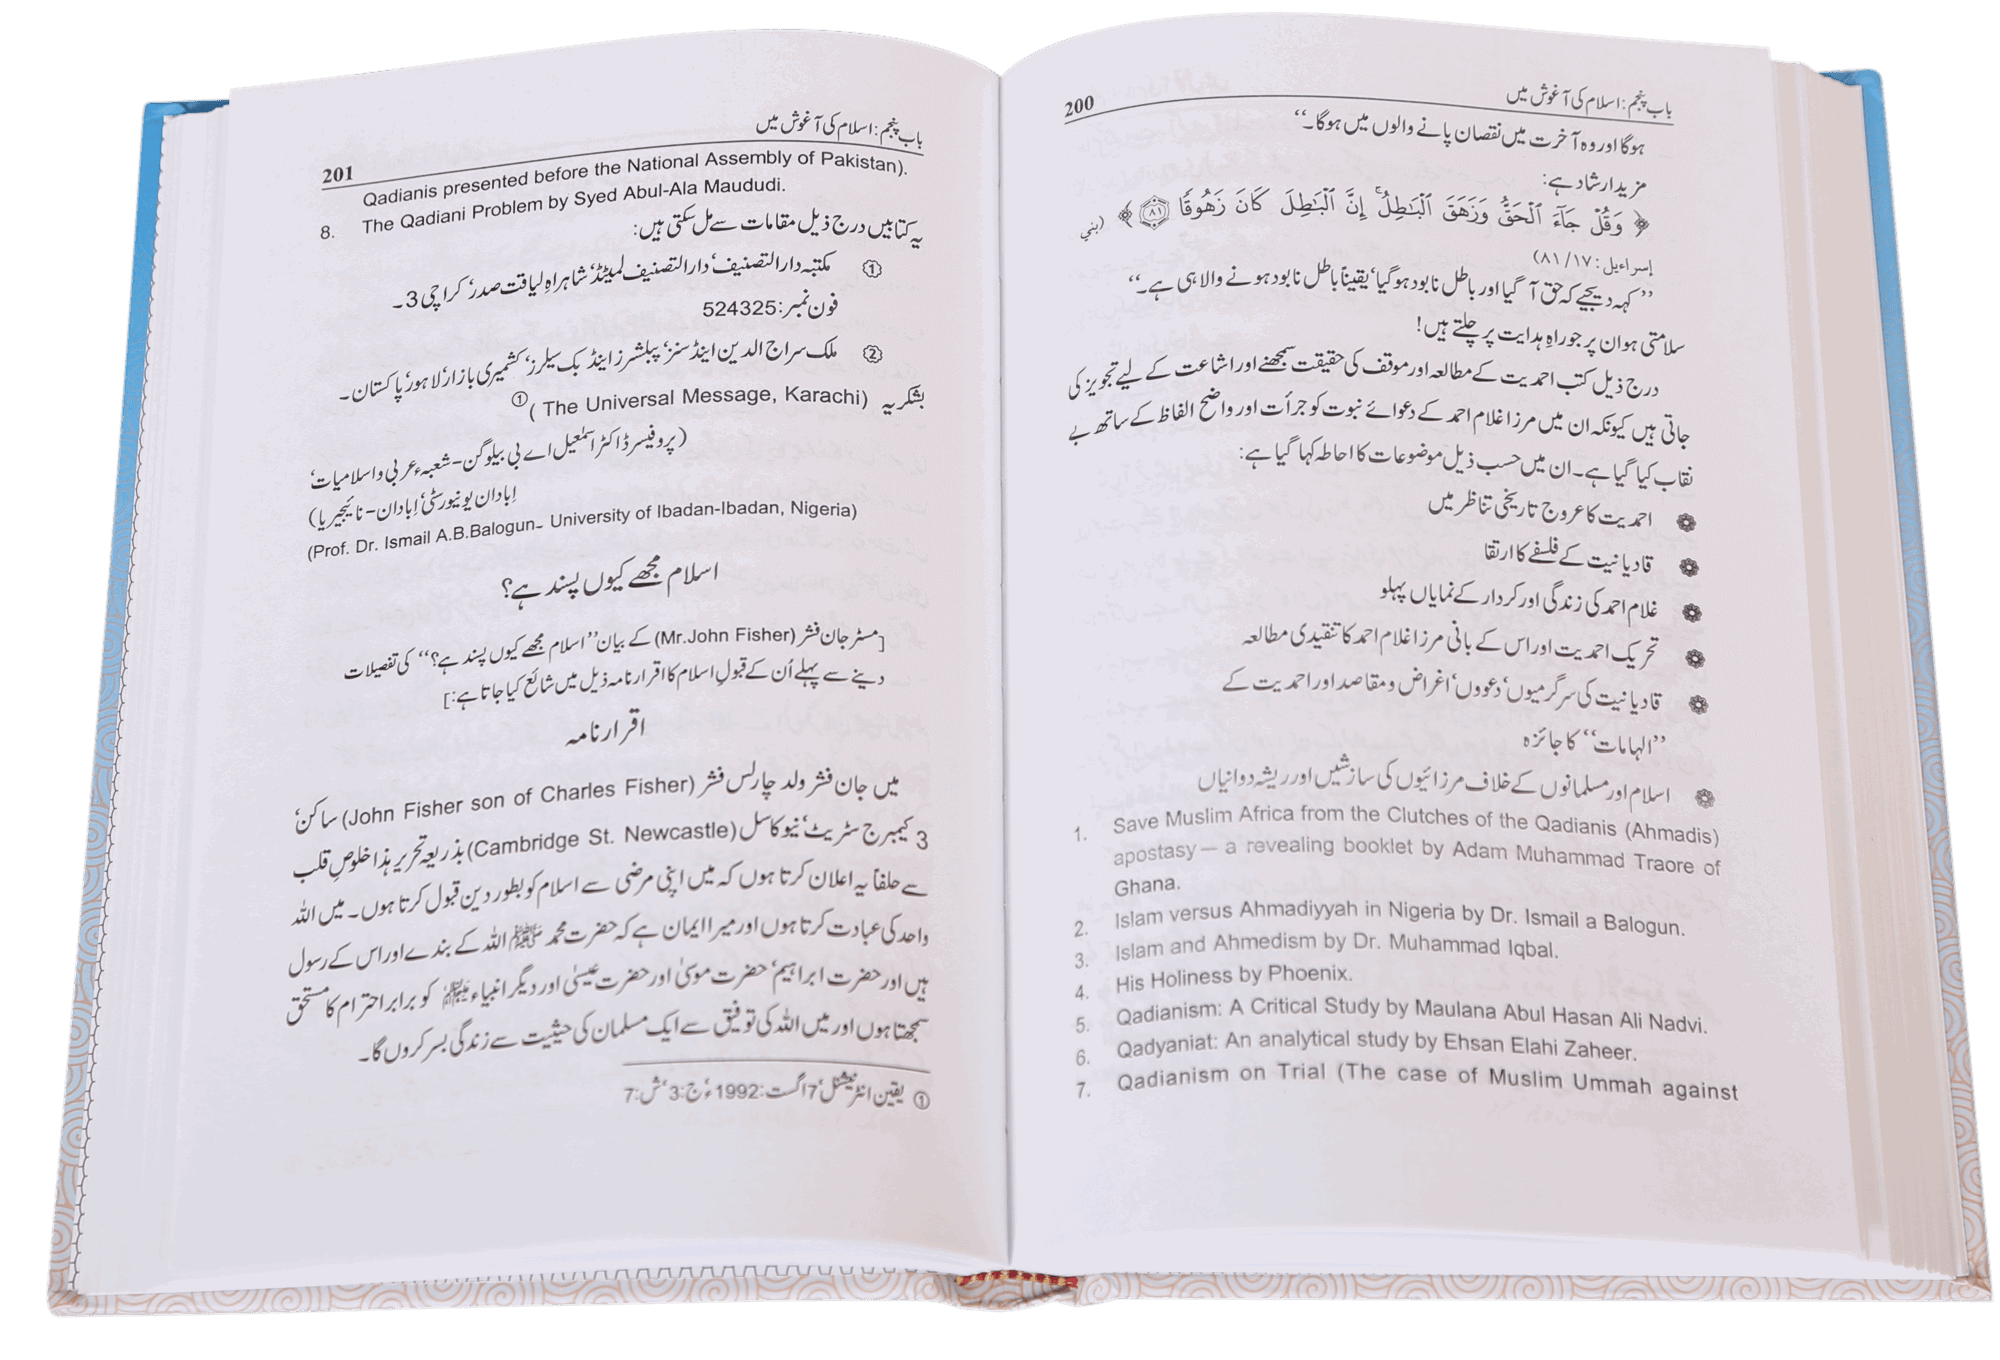 باب پنجم: اسلام کی آغوش میں
200
ہوگا اور وہ آخرت میں نقصان پانے والوں میں ہوگا۔‘‘
مزید ارشاد ہے:
﴿ وَقُلْ جَآءَ ٱلْحَقُّ وَزَهَقَ ٱلْبَـٰطِلُ ۚ إِنَّ ٱلْبَـٰطِلَ كَانَ زَهُوقًا ۝٨١ ﴾ (بني
إسراءيل: ٨١/١٧)
’’کہہ دیجیے کہ حق آ گیا اور باطل نابود ہو گیا‘ یقیناً باطل نابود ہونے والا ہی ہے۔‘‘
سلامتی ہو ان پر جو راہِ ہدایت پر چلتے ہیں!
درج ذیل کتب احمدیت کے مطالعہ اور موقف کی حقیقت سمجھنے اور اشاعت کے لیے تجویز کی
جاتی ہیں کیونکہ ان میں مرزا غلام احمد کے دعوائے نبوت کو جرأت اور واضح الفاظ کے ساتھ بے
نقاب کیا گیا ہے۔ ان میں حسب ذیل موضوعات کا احاطہ کہا گیا ہے:
احمدیت کا عروج تاریخی تناظر میں
قادیانیت کے فلسفے کا ارتقا
غلام احمد کی زندگی اور کردار کے نمایاں پہلو
تحریک احمدیت اور اس کے بانی مرزا غلام احمد کا تنقیدی مطالعہ
قادیانیت کی سرگرمیوں‘ دعووں‘ اغراض و مقاصد اور احمدیت کے
’’الہامات‘‘ کا جائزہ
اسلام اور مسلمانوں کے خلاف مرزائیوں کی سازشیں اور ریشہ دوانیاں
1. Save Muslim Africa from the Clutches of the Qadianis (Ahmadis)
apostasy — a revealing booklet by Adam Muhammad Traore of
Ghana.
2. Islam versus Ahmadiyyah in Nigeria by Dr. Ismail a Balogun.
3. Islam and Ahmedism by Dr. Muhammad Iqbal.
4. His Holiness by Phoenix.
5. Qadianism: A Critical Study by Maulana Abul Hasan Ali Nadvi.
6. Qadyaniat: An analytical study by Ehsan Elahi Zaheer.
7. Qadianism on Trial (The case of Muslim Ummah against
باب پنجم: اسلام کی آغوش میں
201
Qadianis presented before the National Assembly of Pakistan).
8. The Qadiani Problem by Syed Abul-Ala Maududi.
یہ کتابیں درج ذیل مقامات سے مل سکتی ہیں:
① مکتبہ دار التصنیف‘ دار التصنیف لمیٹڈ‘ شاہراہِ لیاقت صدر‘ کراچی 3۔
فون نمبر: 524325
② ملک سراج الدین اینڈ سنز‘ پبلشرز اینڈ بک سیلرز‘ کشمیری بازار‘ لاہور‘ پاکستان۔
بشکریہ (The Universal Message, Karachi) ①
(پروفیسر ڈاکٹر اسمٰعیل اے بی بیلوگن - شعبہء عربی و اسلامیات‘
اِبادان یونیورسٹی‘ اِبادان - نائیجیریا)
(Prof. Dr. Ismail A.B.Balogun- University of Ibadan-Ibadan, Nigeria)
اسلام مجھے کیوں پسند ہے؟
[مسٹر جان فشر (Mr.John Fisher) کے بیان ’’اسلام مجھے کیوں پسند ہے؟‘‘ کی تفصیلات
دینے سے پہلے اُن کے قبولِ اسلام کا اقرار نامہ ذیل میں شائع کیا جاتا ہے:]
اقرار نامہ
میں جان فشر ولد چارلس فشر (John Fisher son of Charles Fisher) ساکن‘
3 کیمبرج سٹریٹ‘ نیو کاسل (Cambridge St. Newcastle) بذریعہ تحریر ہذا خلوصِ قلب
سے حلفاً یہ اعلان کرتا ہوں کہ میں اپنی مرضی سے اسلام کو بطور دین قبول کرتا ہوں۔ میں اللہ
واحد کی عبادت کرتا ہوں اور میرا ایمان ہے کہ حضرت محمد ﷺ اللہ کے بندے اور اس کے رسول
ہیں اور حضرت ابراہیم‘ حضرت موسیٰ اور حضرت عیسیٰ اور دیگر انبیاء علیہم السلام کو برابر احترام کا مستحق
سمجھتا ہوں اور میں اللہ کی توفیق سے ایک مسلمان کی حیثیت سے زندگی بسر کروں گا۔
① یقین انٹرنیشنل‘ 7 اگست: 1992ء‘ ج: 3‘ ش: 7